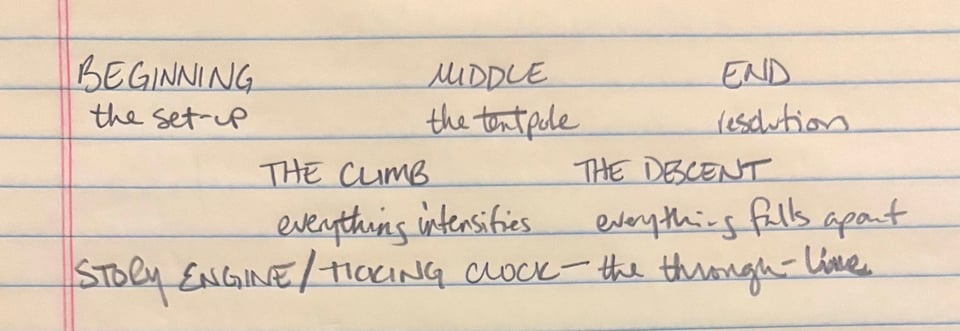 BEGINNING MIDDLE END
the set-up the tentpole resolution
THE CLIMB THE DESCENT
everything intensifies everything falls apart
STORY ENGINE/TICKING CLOCK — the through-line